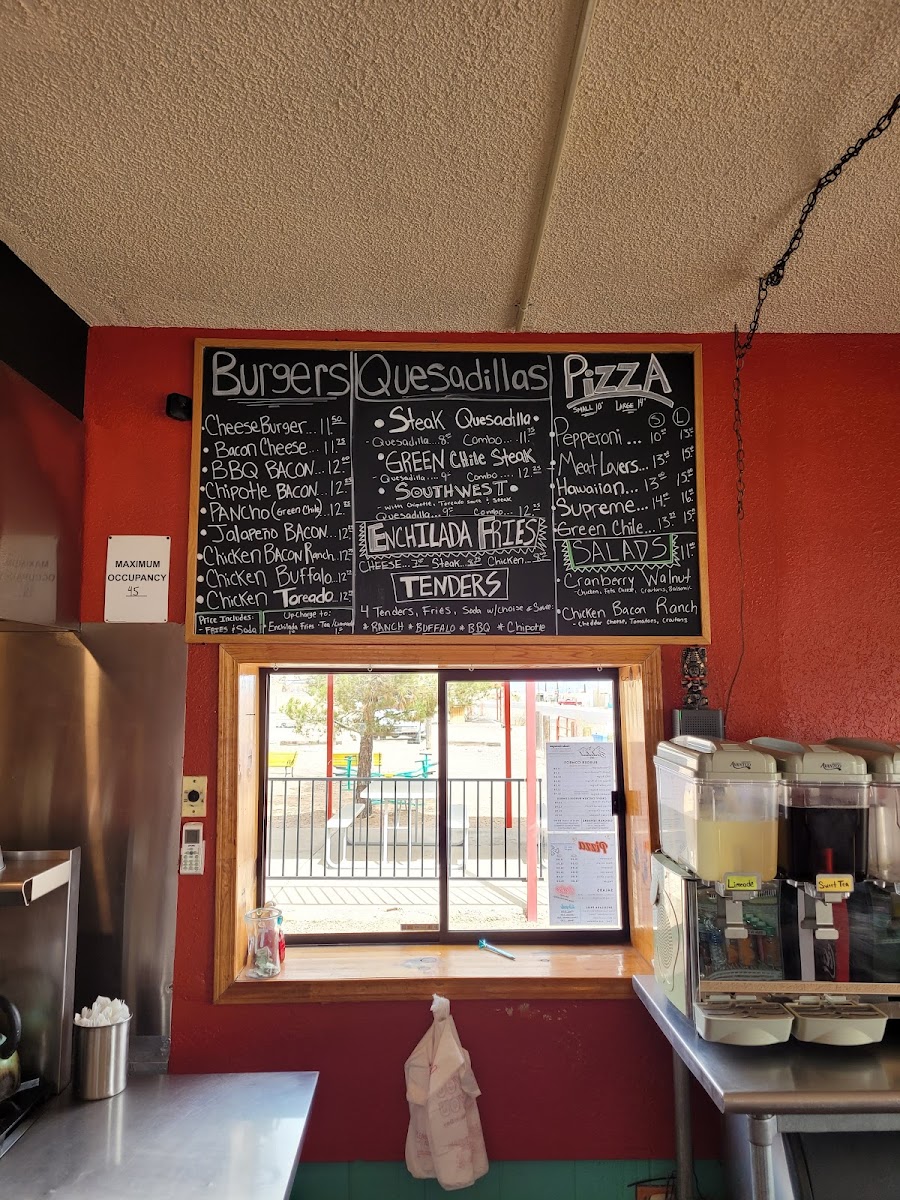 Burgers
Cheese Burger... 11.50
Bacon Cheese... 11.75
BBQ BACON... 12
Chipotle BACON...12
PANCHO (Green Chile)..12
Jalapeño BACON...12
Chicken BACON Ranch..12
Chicken Buffalo...12
Chicken Toreado..12
Price Includes:
- FRIES & Soda
Upcharge to:
Enchilada Fries - Tea/Limeade
Quesadillas
Steak Quesadilla
- Quesadilla...8 Combo....11
GREEN Chile Steak
- Quesadilla....9 Combo....12.25
SOUTHWEST
Quesadilla...9 Combo....12
ENCHILADA FRIES
CHEESE...7 Steak..8 Chicken...9
TENDERS
4 Tenders, Fries, Soda w/choise of Sauce:
* RANCH * BUFFALO * BBQ * Chipotle
PIZZA
SMALL 10" LARGE 14"
S L
Pepperoni ... 10 13
Meat Lovers... 13 15
Hawaiian... 13 15
Supreme... 14 16
Green Chile... 13 15
SALADS 11
Cranberry Walnut
Chicken Bacon Ranch
- Cheddar Cheese, Tomatoes, Croutons
MAXIMUM
OCCUPANCY
45
Pizza
Limeade
Sweet Tea